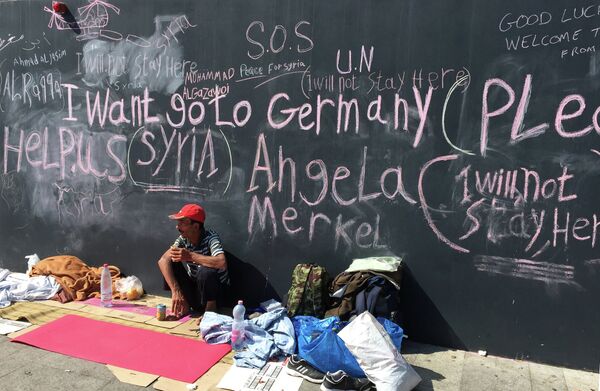 Ahmad al jasim
ALRaqqa
I will not stay Here
Syria
S.O.S
Peace For syria
MUHAMMAD
ALGazawoi
U.N
(I will not stay Here)
GOOD LUCK
WELCOME T
FROM
I Want go to Germany (Plea
HELP.US (SYRIA)
Angela
Merkel
(I will not
Stay, Here